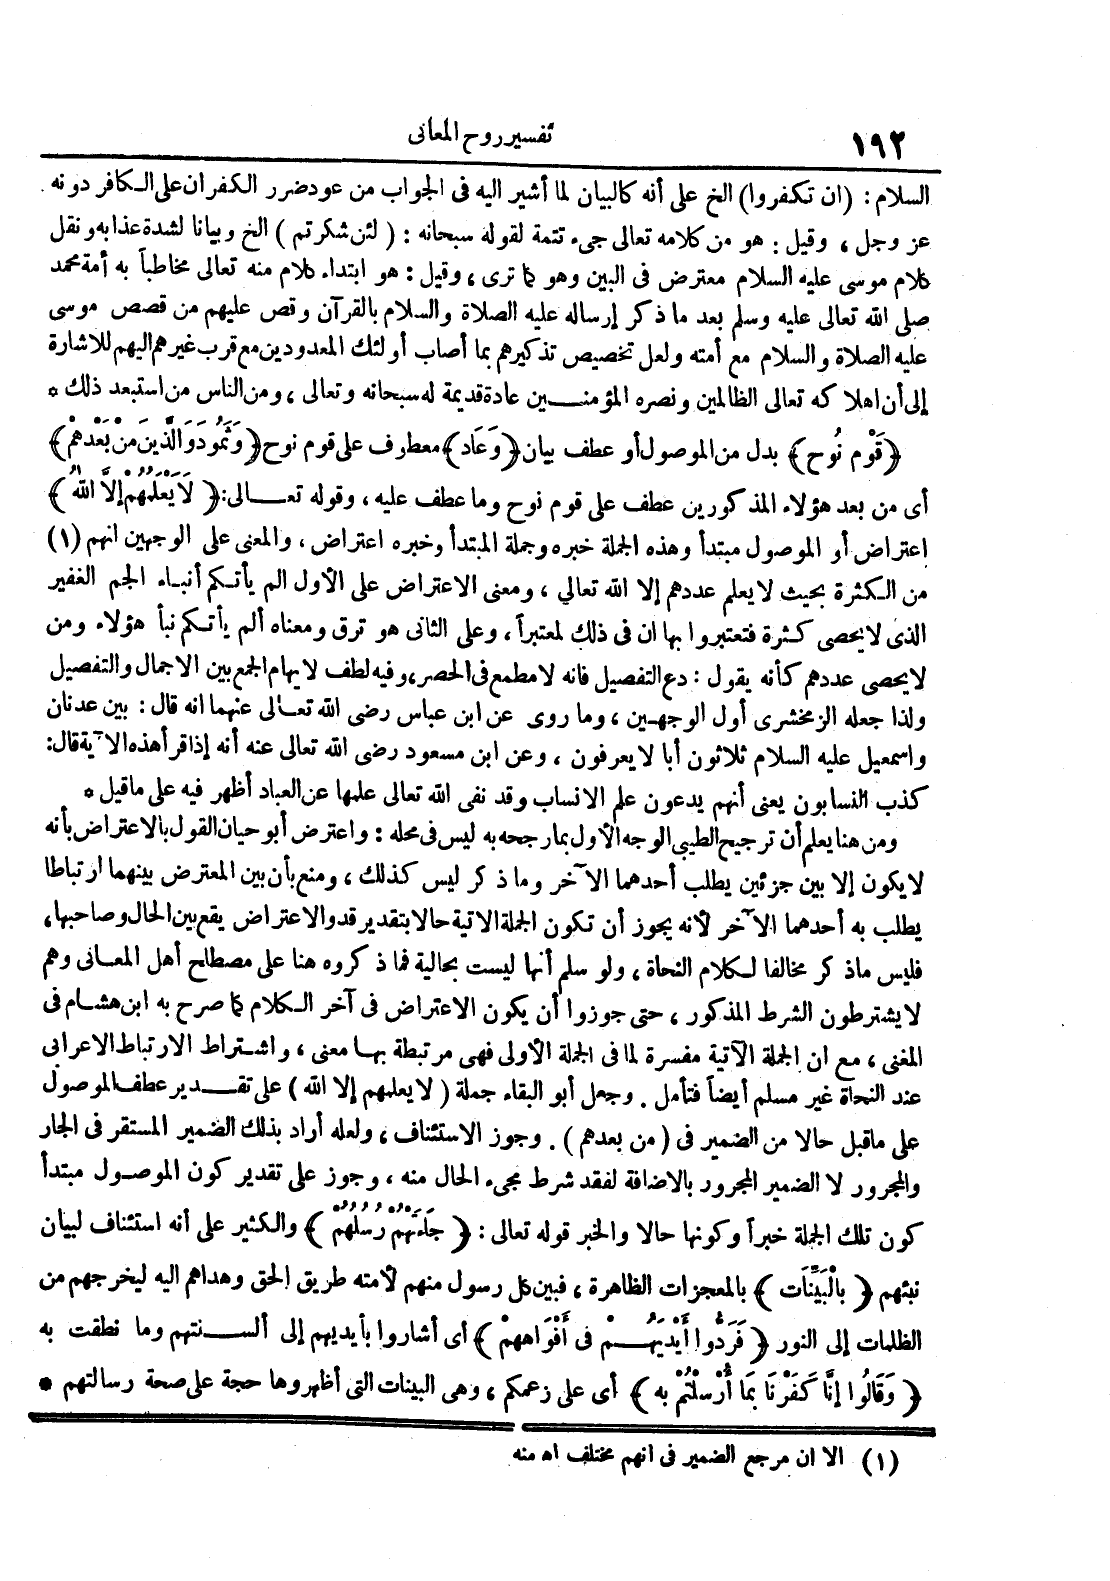 ١٩٢
تفسير روح المعانى
السلام : (ان تكفروا) الخ على أنه كالبيان لما أشير اليه فى الجواب من عود ضرر الكفران على الكافر دونه
عز وجل ، وقيل : هو من كلامه تعالى جىء تتمة لقوله سبحانه : ( لئن شكرتم ) الخ وبيانا لشدة عذابه ونقل
كلام موسى عليه السلام معترض فى البين وهو كما ترى ، وقيل : هو ابتداء كلام منه تعالى مخاطباً به أمة محمد
صلى الله تعالى عليه وسلم بعد ما ذكر إرساله عليه الصلاة والسلام بالقرآن وقص عليهم من قصص موسى
عليه الصلاة والسلام مع أمته ولعل تخصيص تذكيرهم بما أصاب أولئك المعدودين مع قرب غيرهم اليهم للاشارة
إلى أن اهلاكه تعالى الظالمين ونصره المؤمنين عادة قديمة له سبحانه وتعالى ، ومن الناس من استبعد ذلك *
﴿ قَوْمِ نُوحٍ ﴾ بدل من الموصول أو عطف بيان ﴿ وَعَادٍ ﴾ معطوف على قوم نوح ﴿ وَثَمُودَ وَالَّذِينَ مِنْ بَعْدِهِمْ ﴾
أى من بعد هؤلاء المذكورين عطف على قوم نوح وما عطف عليه ، وقوله تعـالى : ﴿ لَا يَعْلَمُهُمْ إِلَّا اللهُ ﴾
اعتراض أو الموصول مبتدأ وهذه الجملة خبره وجملة المبتدأ وخبره اعتراض ، والمعنى على الوجهين انهم (١)
من الكثرة بحيث لا يعلم عددهم إلا الله تعالي ، ومعنى الاعتراض على الأول الم يأتكم أنباء الجم الغفير
الذى لا يحصى كثرة فتعتبروا بها ان فى ذلك لمعتبراً ، وعلى الثانى هو ترق ومعناه ألم يأتكم نبأ هؤلاء ومن
لا يحصى عددهم كأنه يقول : دع التفصيل فانه لا مطمع فى الحصر ، وفيه لطف لايهام الجمع بين الاجمال والتفصيل
ولذا جعله الزمخشرى أول الوجهين ، وما روى عن ابن عباس رضى الله تعالى عنهما انه قال : بين عدنان
واسمعيل عليه السلام ثلاثون أبا لا يعرفون ، وعن ابن مسعود رضى الله تعالى عنه أنه إذا قرأ هذه الآية قال:
كذب النسابون يعنى أنهم يدعون علم الانساب وقد نفى الله تعالى علمها عن العباد أظهر فيه على ما قيل *
ومن هنا يعلم أن ترجيح الطيبى الوجه الأول بما رجحه به ليس فى محله : واعترض أبو حيان القول بالاعتراض بأنه
لا يكون إلا بين جزئين يطلب أحدهما الآخر وما ذكر ليس كذلك ، ومنع بأن بين المعترض بينهما ارتباطا
يطلب به أحدهما الآخر لأنه يجوز أن تكون الجملة الاتية حالا بتقدير قد والاعتراض يقع بين الحال وصاحبها ،
فليس ما ذكر مخالفا لكلام النحاة ، ولو سلم أنها ليست بحالية فما ذكروه هنا على مصطلح أهل المعانى وهم
لا يشترطون الشرط المذكور ، حتى جوزوا أن يكون الاعتراض فى آخر الكلام كما صرح به ابن هشام فى
المغنى ، مع ان الجملة الآتية مفسرة لما فى الجملة الأولى فهى مرتبطة بها معنى ، واشتراط الارتباط الاعرابى
عند النحاة غير مسلم أيضاً فتأمل . وجعل أبو البقاء جملة ( لا يعلمهم إلا الله ) على تقدير عطف الموصول
على ماقبل حالا من الضمير فى ( من بعدهم ) . وجوز الاستئناف ، ولعله أراد بذلك الضمير المستقر فى الجار
والمجرور لا الضمير المجرور بالاضافة لفقد شرط مجىء الحال منه ، وجوز على تقدير كون الموصول مبتدأ
كون تلك الجملة خبراً وكونها حالا والخبر قوله تعالى : ﴿ جَاءَتْهُمْ رُسُلُهُمْ ﴾ والكثير على أنه استئناف لبيان
نبئهم ﴿ بِالْبَيِّنَاتِ ﴾ بالمعجزات الظاهرة ، فبين كل رسول منهم لأمته طريق الحق وهداهم اليه ليخرجهم من
الظلمات إلى النور ﴿ فَرَدُّوا أَيْدِيَهُمْ فِى أَفْوَاهِهِمْ ﴾ أى أشاروا بأيديهم إلى ألسنتهم وما نطقت به
﴿ وَقَالُوا إِنَّا كَفَرْنَا بِمَا أُرْسِلْتُمْ بِهِ ﴾ أى على زعمكم ، وهى البينات التى أظهروها حجة على صحة رسالتهم *
(١) الا ان مرجع الضمير فى انهم مختلف اه منه